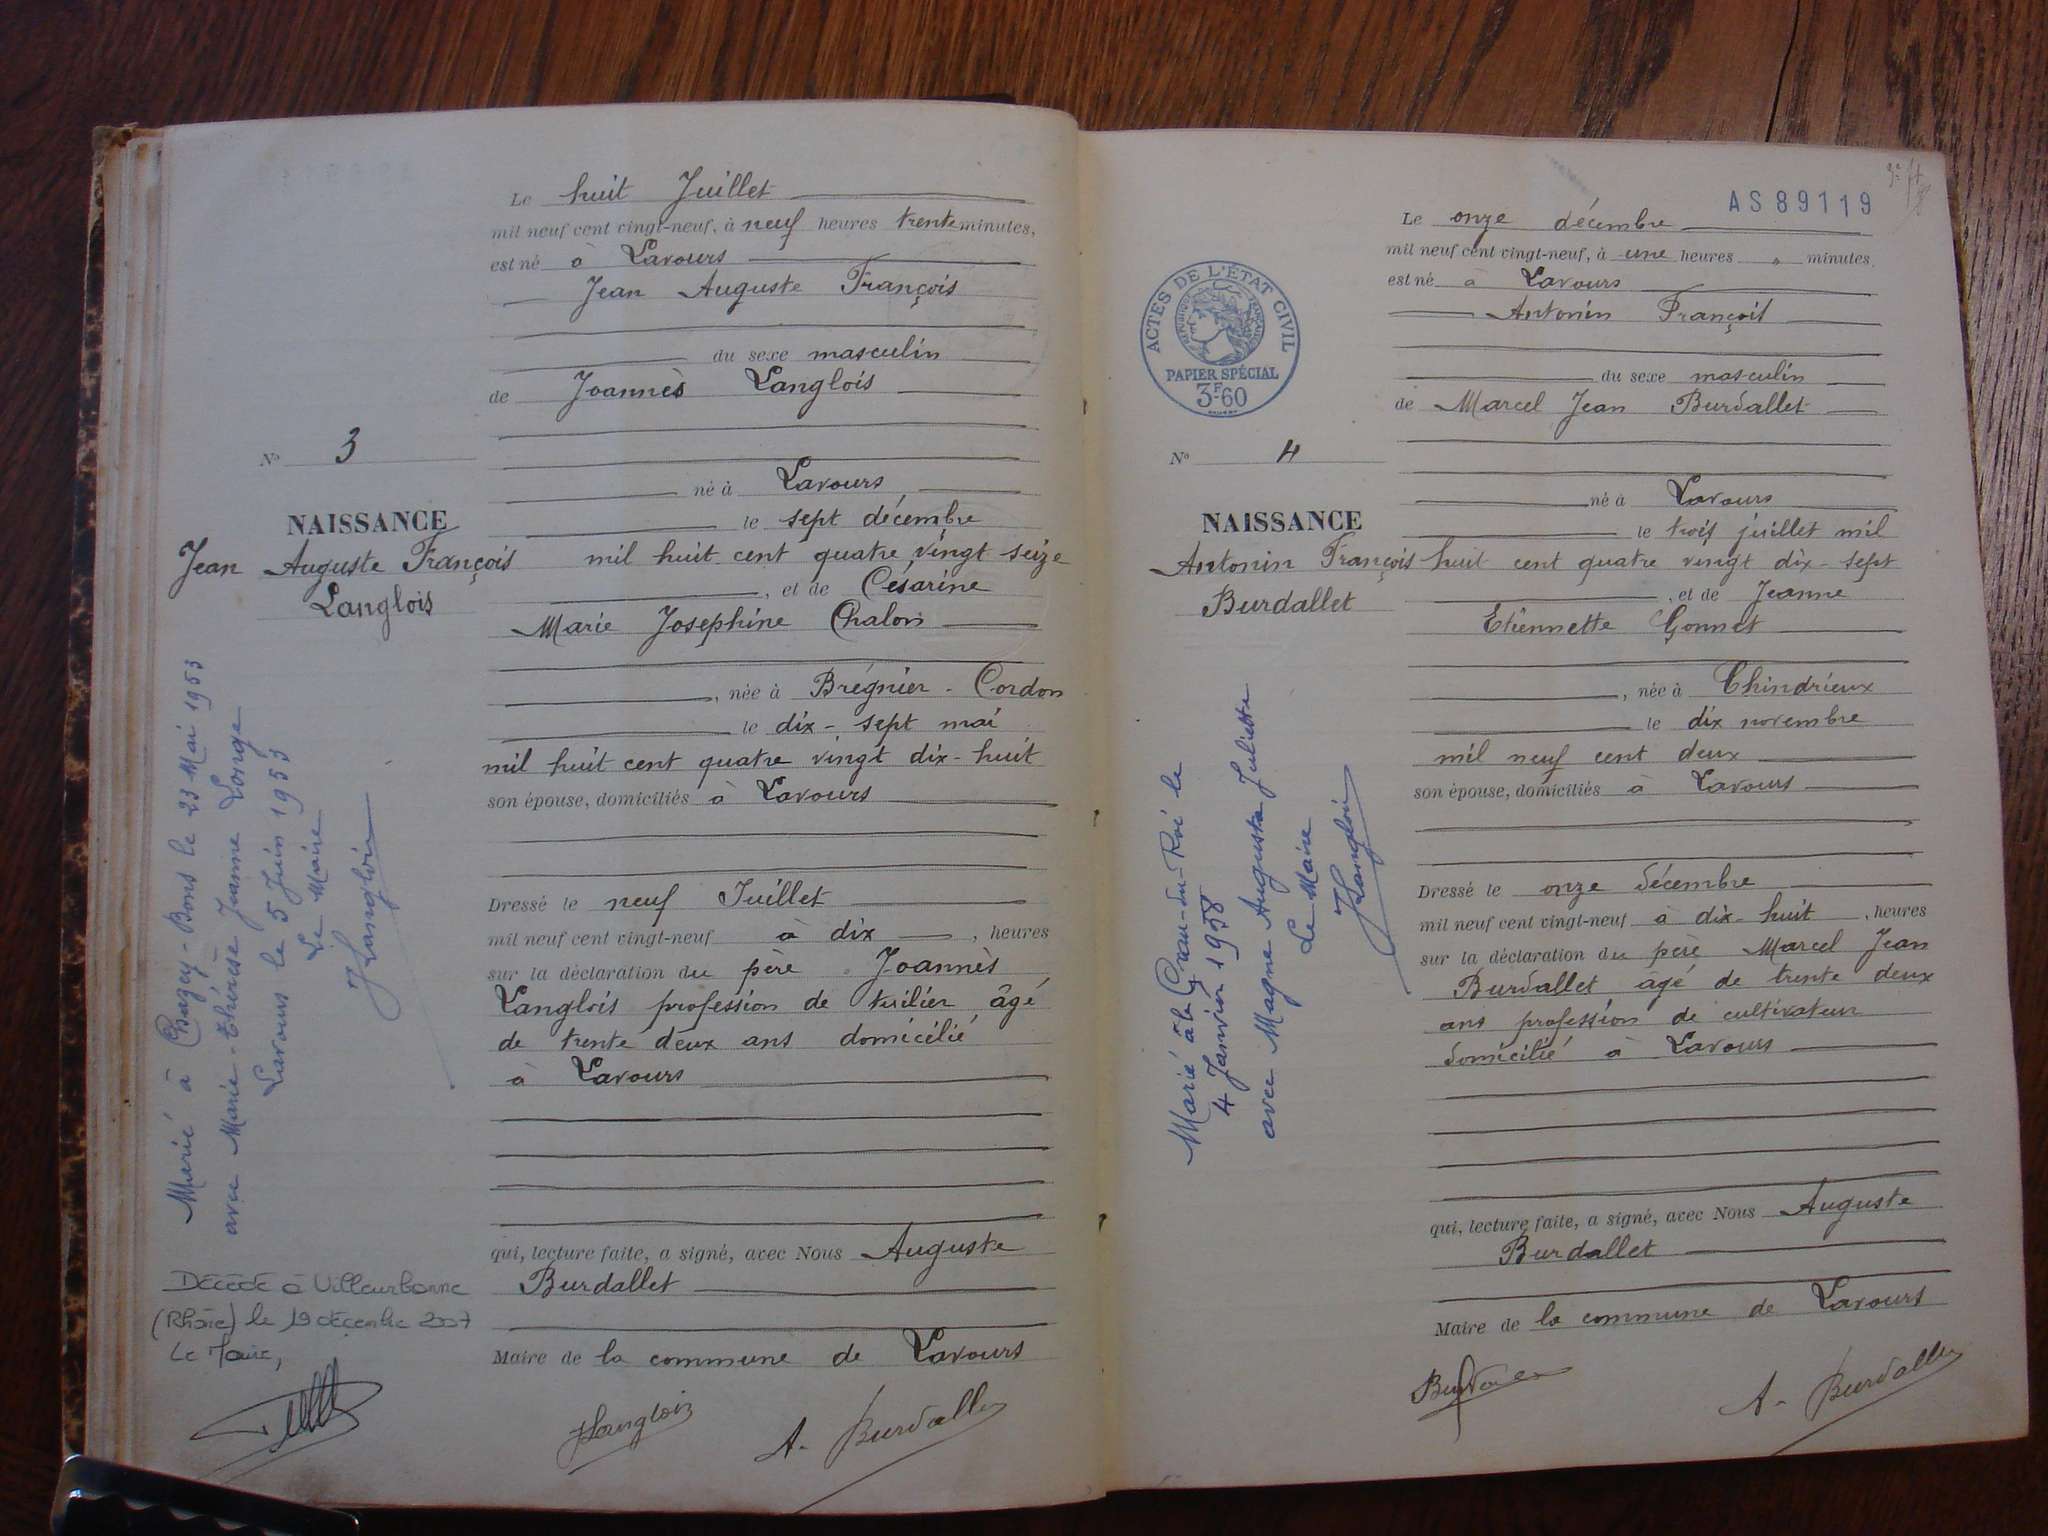 Le huit Juillet
mil neuf cent vingt-neuf, à neuf heures trente minutes,
est né à Lavours
Jean Auguste François
du sexe masculin
de Joannès Langlois
né à Lavours
le sept décembre
mil huit cent quatre vingt seize
, et de Césarine
Marie Josephine Chalon
, née à Brégnier - Cordon
le dix - sept mai
mil huit cent quatre vingt dix - huit
son épouse, domiciliés à Lavours
Dressé le neuf Juillet
mil neuf cent vingt-neuf à dix , heures
sur la déclaration du père Joannès
Langlois profession de tuilier âgé
de trente deux ans domicilié
à Lavours
qui, lecture faite, a signé, avec Nous Auguste
Burdallet
Maire de la commune de Lavours
JLanglois
A. Burdallet
No 3
NAISSANCE
Jean Auguste François
Langlois
Marié à Chazey - Bons le 23 Mai 1953
avec Marie - Thérèse Jeanne Longe
Lavours le 5 Juin 1953
Le Maire
JLanglois
Décédé à Villeurbanne
(Rhône) le 19 décembre 2007
Le Maire,
AS89119
Le onze décembre
mil neuf cent vingt-neuf, à une heures " minutes
est né à Lavours
Antonin François
du sexe masculin
de Marcel Jean Burdallet
né à Lavours
le trois juillet mil
huit cent quatre vingt dix - sept
, et de Jeanne
Etiennette Gonnet
, née à Chindrieux
le dix novembre
mil neuf cent deux
son épouse, domiciliés à Lavours
Dressé le onze décembre
mil neuf cent vingt-neuf à dix - huit , heures
sur la déclaration du père Marcel Jean
Burdallet âgé de trente deux
ans profession de cultivateur
domicilié à Lavours
qui, lecture faite, a signé, avec Nous Auguste
Burdallet
Maire de la commune de Lavours
A. Burdallet
ACTES DE L'ÉTAT CIVIL
PAPIER SPÉCIAL
3F60
No 4
NAISSANCE
Antonin François
Burdallet
Marié à le Grau-du-Roi le
4 Janvier 1958
avec Magne Augusta Juliette
Le Maire
JLanglois